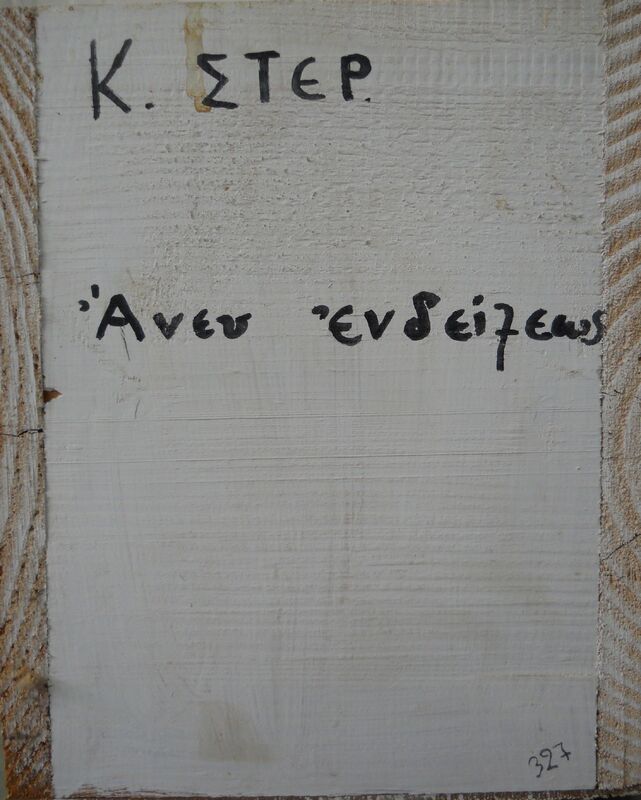 Κ. ΣΤΕΡ.
Ἄνευ ἐνδείξεως
327